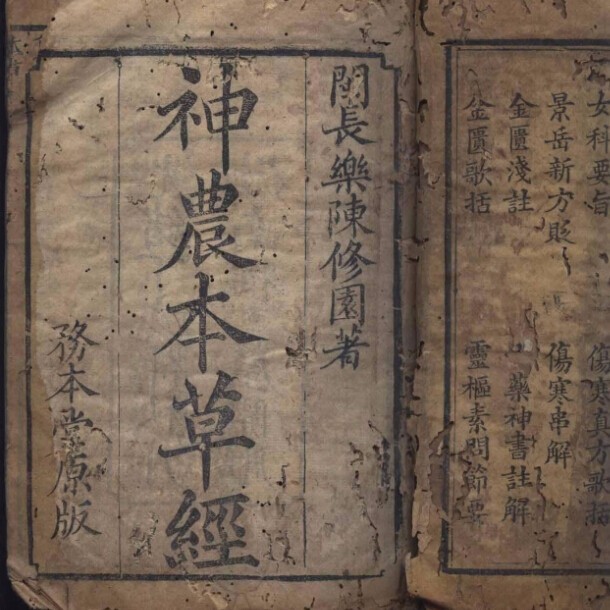 女科要旨
傷寒真方歌括
景岳新方貶
傷寒串解
金匱淺註
藥神書註解
金匱歌括
靈樞素問節要
閩長樂陳修園著
神農本草經
務本堂原版